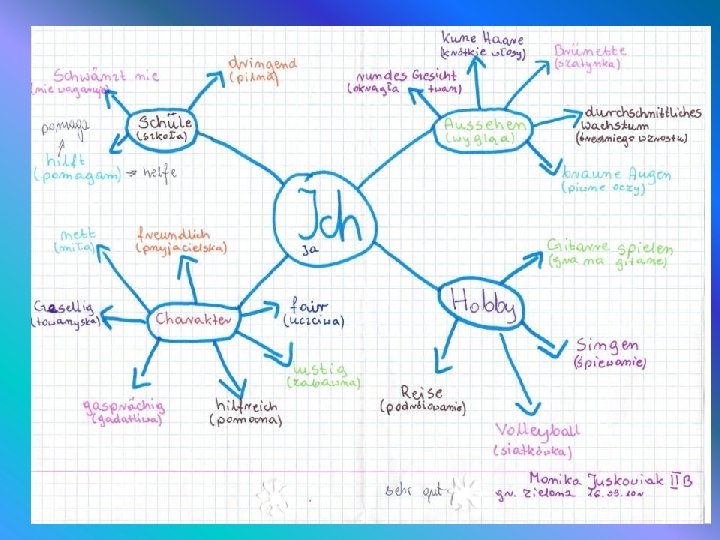 Kurze Haare
(krótkie włosy)
Brünette
(szatynka)
dringend
(pilna)
Schwänzt nie
(nie wagaruję)
rundes Gesicht
(okrągła twarz)
Schüle
(szkoła)
Aussehen
(wygląd)
durchschnittliches
Wachstum
(średniego wzrostu)
pomaga
hilft
(pomagam) → helfe
braune Augen
(piwne oczy)
Ich
ja
nett
(miła)
freundlich
(przyjacielska)
Gitarre spielen
(gra na gitarze)
Gesellig
(towarzyska)
Charakter
fair
(uczciwa)
Hobby
Singen
(śpiewanie)
lustig
(zabawna)
gaspräching
(gadatliwa)
hilfreich
(pomocna)
Reise
(podróżowanie)
Volleyball
(siatkówka)
sehr gut
Monika Juskowiak II B
gr. zielona